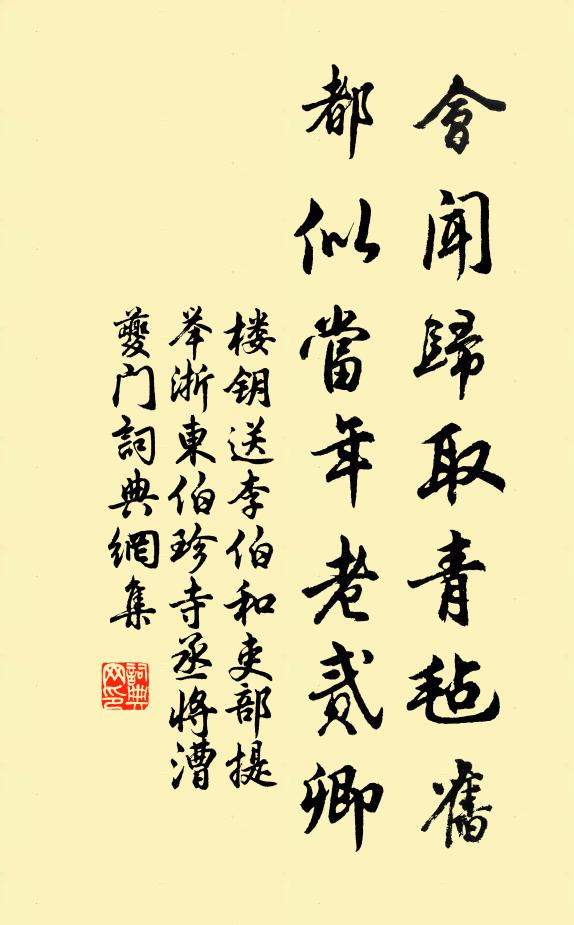 會聞歸取青毡舊
都似當年老貳卿
楼钥送李伯和吏部提
举浙東伯珍寺丞將漕
夔门詞典網集
詞典
网印